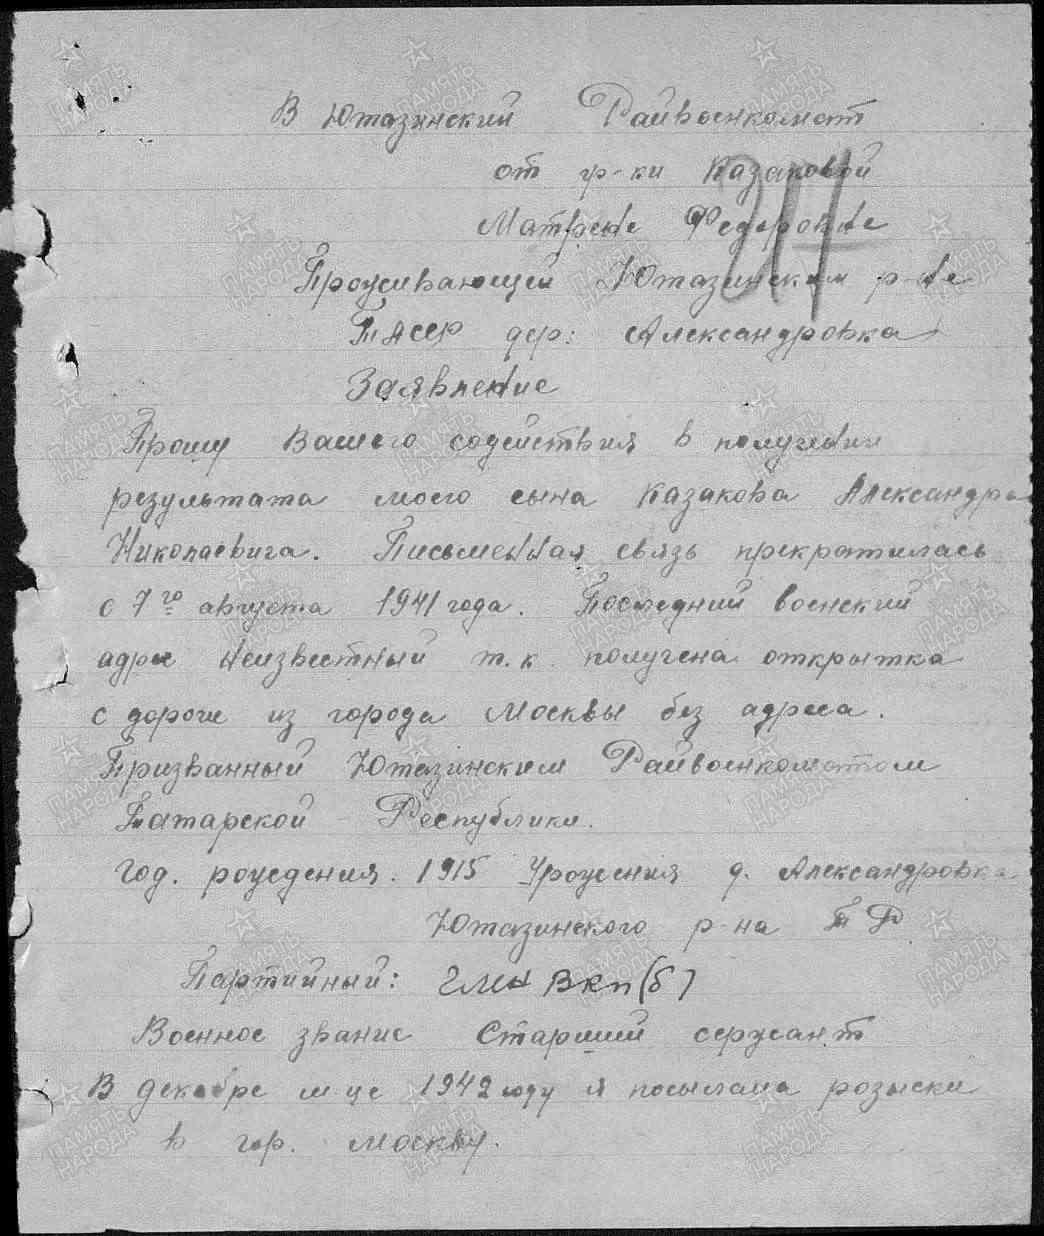 В Ютазинский Райвоенкомат
от гр-ки Казаковой
Матрене Федоровне
Проживающей Ютазинским р-не
ТАССР дер: Александровка
Заявление
Прошу Вашего содействия в получении
результата моего сына Казакова Александра
Николаевича. Письменная связь прекратилась
с 7го августа 1941 года. Последний воинский
адрес неизвестный т.к. получена открытка
с дороги из города Москвы без адреса.
Призванный Ютазинским Райвоенкоматом
Татарской Республики.
Год. рождения. 1915 Урожения д. Александровка
Ютазинского р-на ТР
Партийный: Член ВКП(б)
Военное звание Старший сержант
В декабре м-це 1942 году я посылала розыски
в гор. Москву.
ПАМЯТЬ НАРОДА